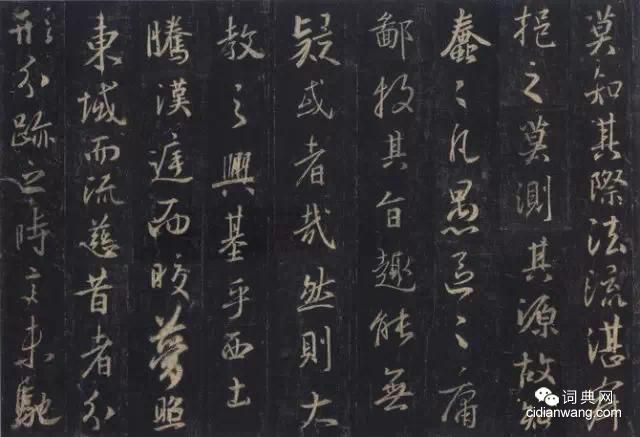 莫知其際法流湛寂
挹之莫測其源故知
蠢々凡愚區々庸
鄙投其旨趣能無
疑或者哉然則大
教之興基乎西土
騰漢庭而皎夢照
東域而流慈昔者分
形分跡之時言未馳
词典网
cidianwang.com